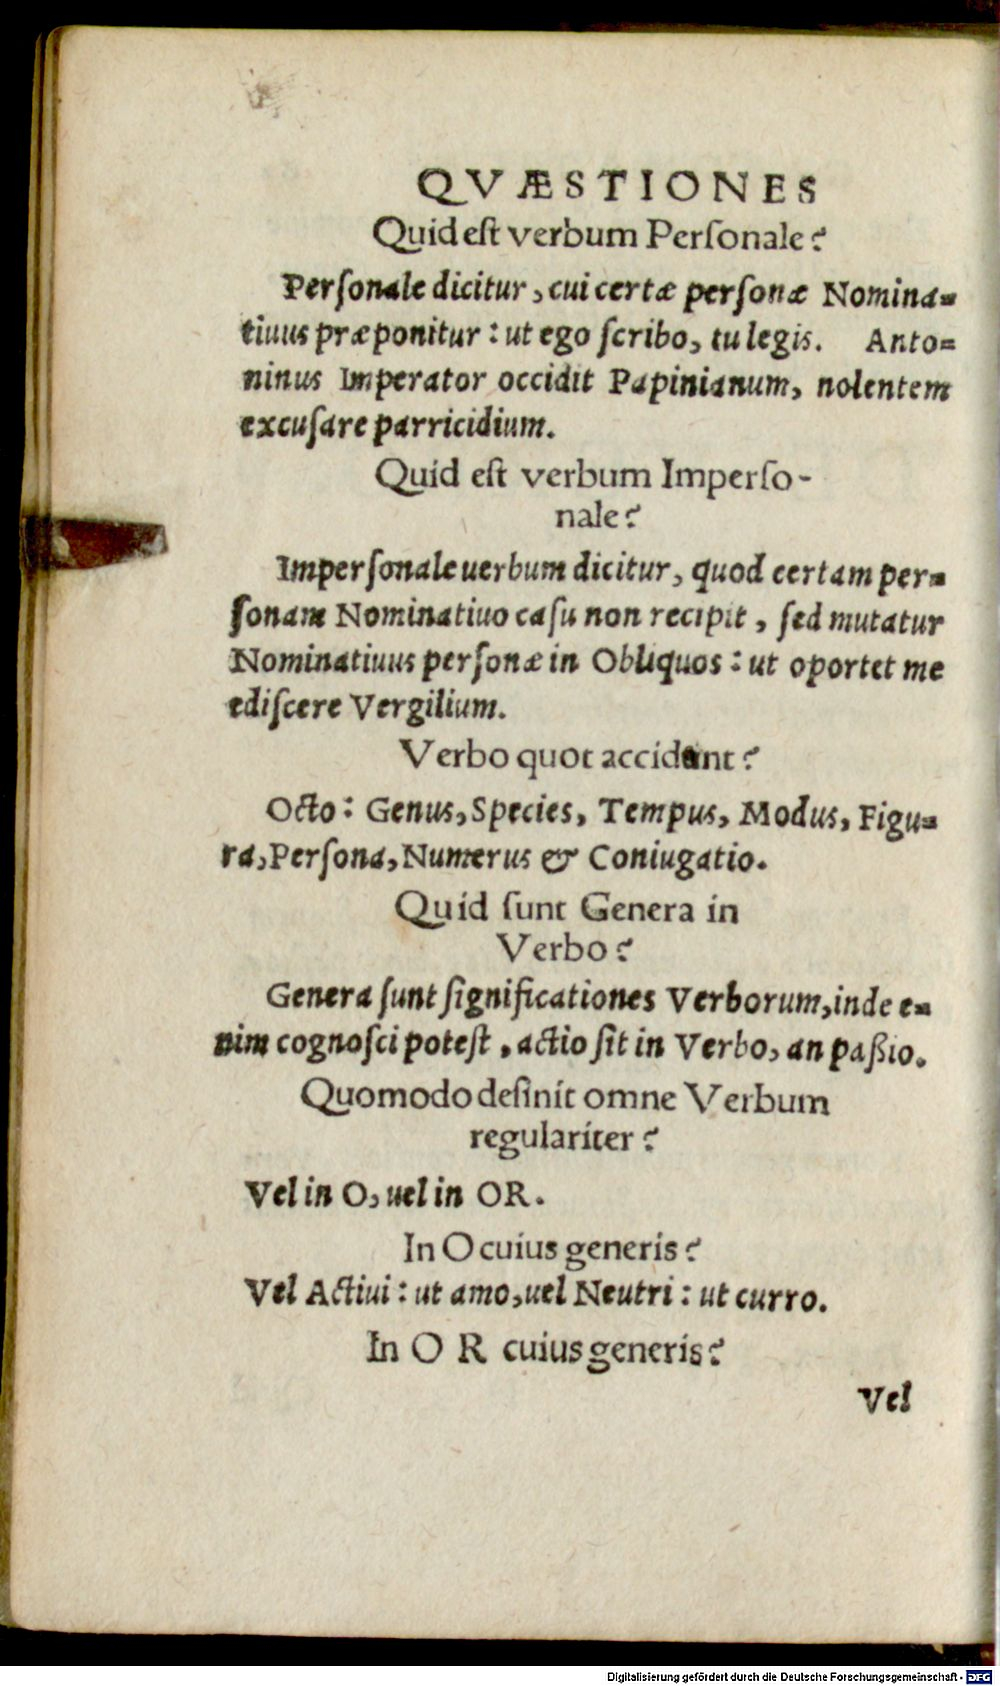 QVÆSTIONES
Quid eſt verbum Perſonale?
Perſonale dicitur, cui certæ perſonæ Nomina-
tiuus præponitur: ut ego ſcribo, tu legis. Anto-
ninus Imperator occidit Papinianum, nolentem
excuſare parricidium.
Quid eſt verbum Imperſo-
nale?
Imperſonale uerbum dicitur, quod certam per-
ſonam Nominatiuo caſu non recipit, ſed mutatur
Nominatiuus perſonæ in Obliquos: ut oportet me
ediſcere Vergilium.
Verbo quot accidunt?
Octo: Genus, Species, Tempus, Modus, Figu-
ra, Perſona, Numerus & Coniugatio.
Quid ſunt Genera in
Verbo?
Genera ſunt ſignificationes Verborum, inde e-
nim cognoſci poteſt, actio ſit in Verbo, an paßio.
Quomodo deſinit omne Verbum
regulariter?
Vel in O, uel in OR.
In O cuius generis?
Vel Actiui: ut amo, uel Neutri: ut curro.
In O R cuius generis?
Vel
Digitalisierung gefördert durch die Deutsche Forschungsgemeinschaft - DFG